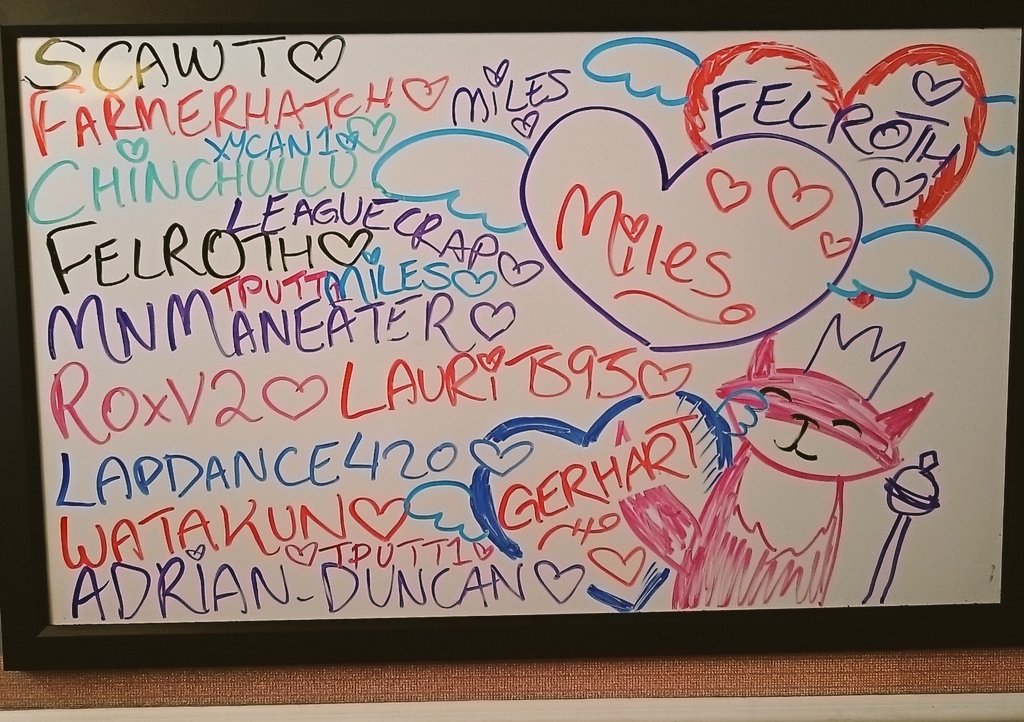 SCAWT
FARMERHATCH
MiLES
FELROTH
XYCAN1
CHiNCHULLU
LEAGUECRAP
FELROTH
Miles
TPUTT1
MiLES
MNMANEATER
ROXV2
LAURiTS93
LAPDANCE420
GERHART
WATAKUN
TPUTT1
ADRiAN_DUNCAN